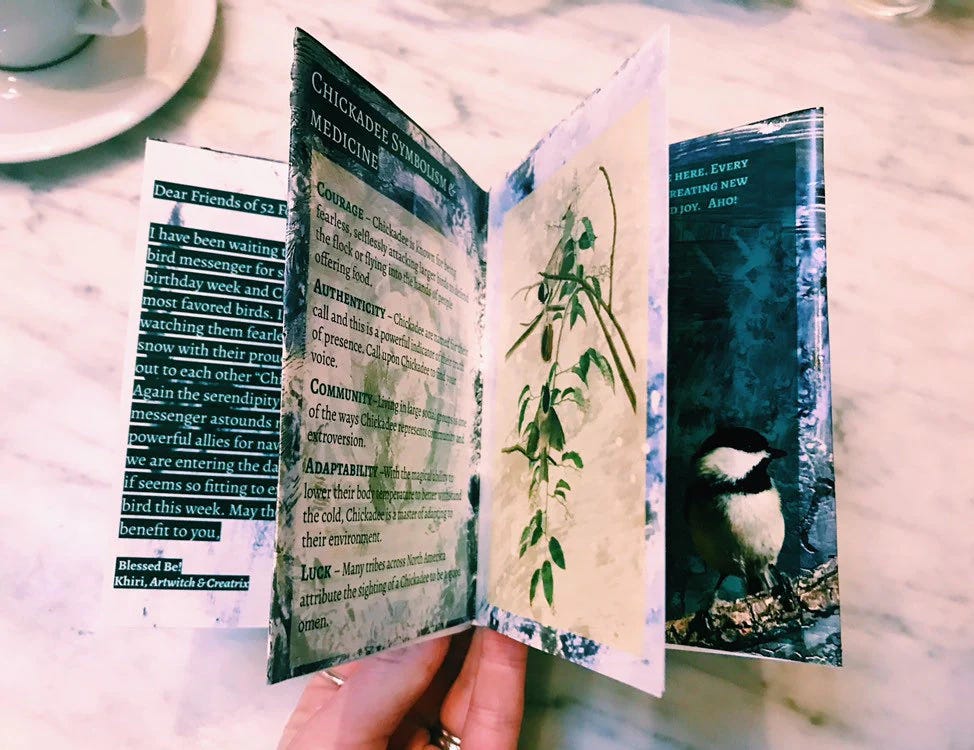 Dear Friends of 52 F
I have been waiting t
bird messenger for s
birthday week and C
most favored birds. I
watching them fearle
snow with their prou
out to each other “Ch
Again the serendipity
messenger astounds
powerful allies for nav
we are entering the da
if seems so fitting to e
bird this week. May th
benefit to you,
Blessed Be!
Khiri, Artwitch & Creatrix
Chickadee Symbolism &
medicine
Courage – Chickadee is known for being
fearless, selflessly attacking larger birds to defend
the flock or flying into the hands of people
offering food.
Authenticity – Chickadee are named for their
call and this is a powerful indicator of their
of presence. Call upon Chickadee to find your
voice.
Community–Living in large social groups is one
of the ways Chickadee represents community and
extroversion.
Adaptability –With the magical ability to
lower their body temperature to better withstand
the cold, Chickadee is a master of adapting to
their environment.
Luck – Many tribes across North America
attribute the sighting of a Chickadee to be a good
omen.
here. Every
reating new
d joy. Aho!